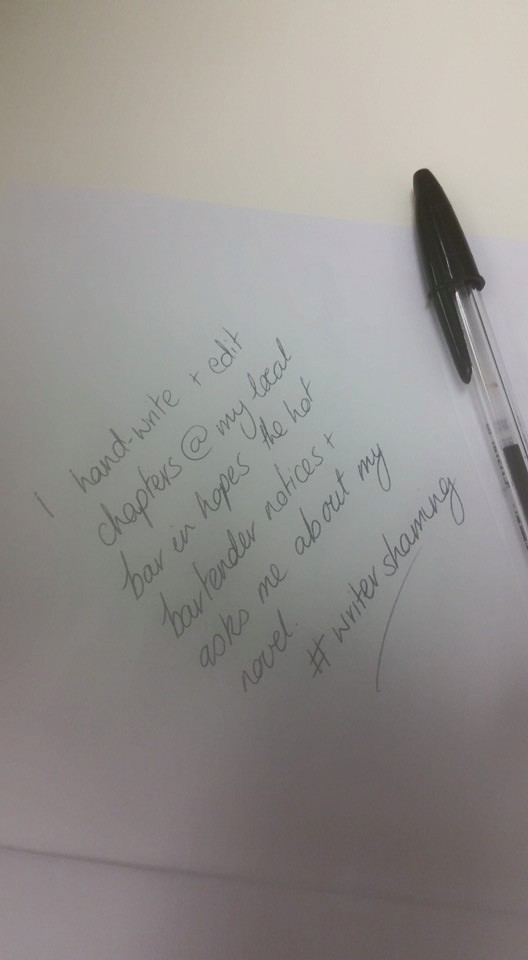 I hand-write + edit
chapters @ my local
bar in hopes the hot
bartender notices +
asks me about my
novel.
#writershaming